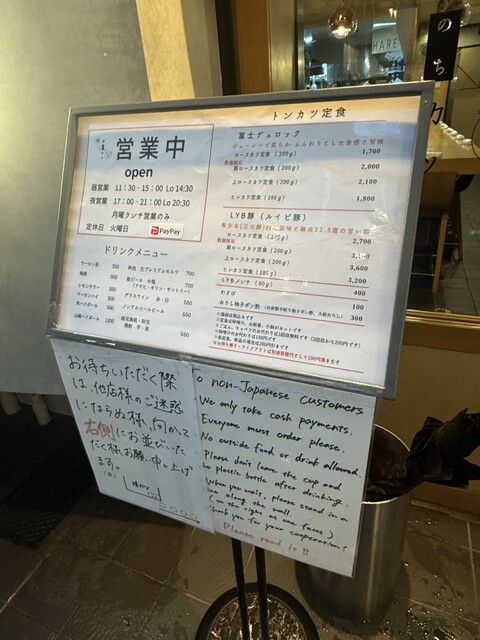 営業中
open
昼営業 11:30 - 15:00 Lo 14:30
夜営業 17:00 - 21:00 Lo 20:30
月曜ランチ営業のみ
定休日 火曜日 PayPay
ドリンクメニュー
ウーロン茶 300
梅酒 500
レモンサワー 550
ウーロンハイ 500
角ハイボール 550
山崎ハイボール 1300
特別 生プレミアムモルツ 700
瓶ビール 中瓶 700
(アサヒ・キリン・サントリー)
グラスワイン 赤・白 550
ノンアルコールビール 550
トンカツ定食
富士デュロック
ロースカツ定食(200g) 1,700
数量限定
肩ロースカツ定食(200g) 2,000
上ロースカツ定食(200g) 2,100
ヒレカツ定食(180g) 1,800
LYB豚(ルイビ豚)
ロースカツ定食 2,700
数量限定
肩ロースカツ定食(200g) 3,100
上ロースカツ定食(200g) 3,600
ヒレカツ定食(180g) 3,200
LYBメンチ(60g) 400
わさび 100
おろし柚子ポン酢 300
お待ちいただく際
は、他店様のご迷惑
にならぬ様、向かって
右側にお並びいた
だく様、お願い申し上げ
ます。
o non-Japanese customers
We only take cash payments.
Everyone must order please.
No outside food or drink allowed.
Please don't leave the cup and
plastic bottle after drinking.
When you wait, please stand in a
line along the wall.
(on the right as one faces)
Thank you for your cooperation!
Please read it!!
HARE
のち